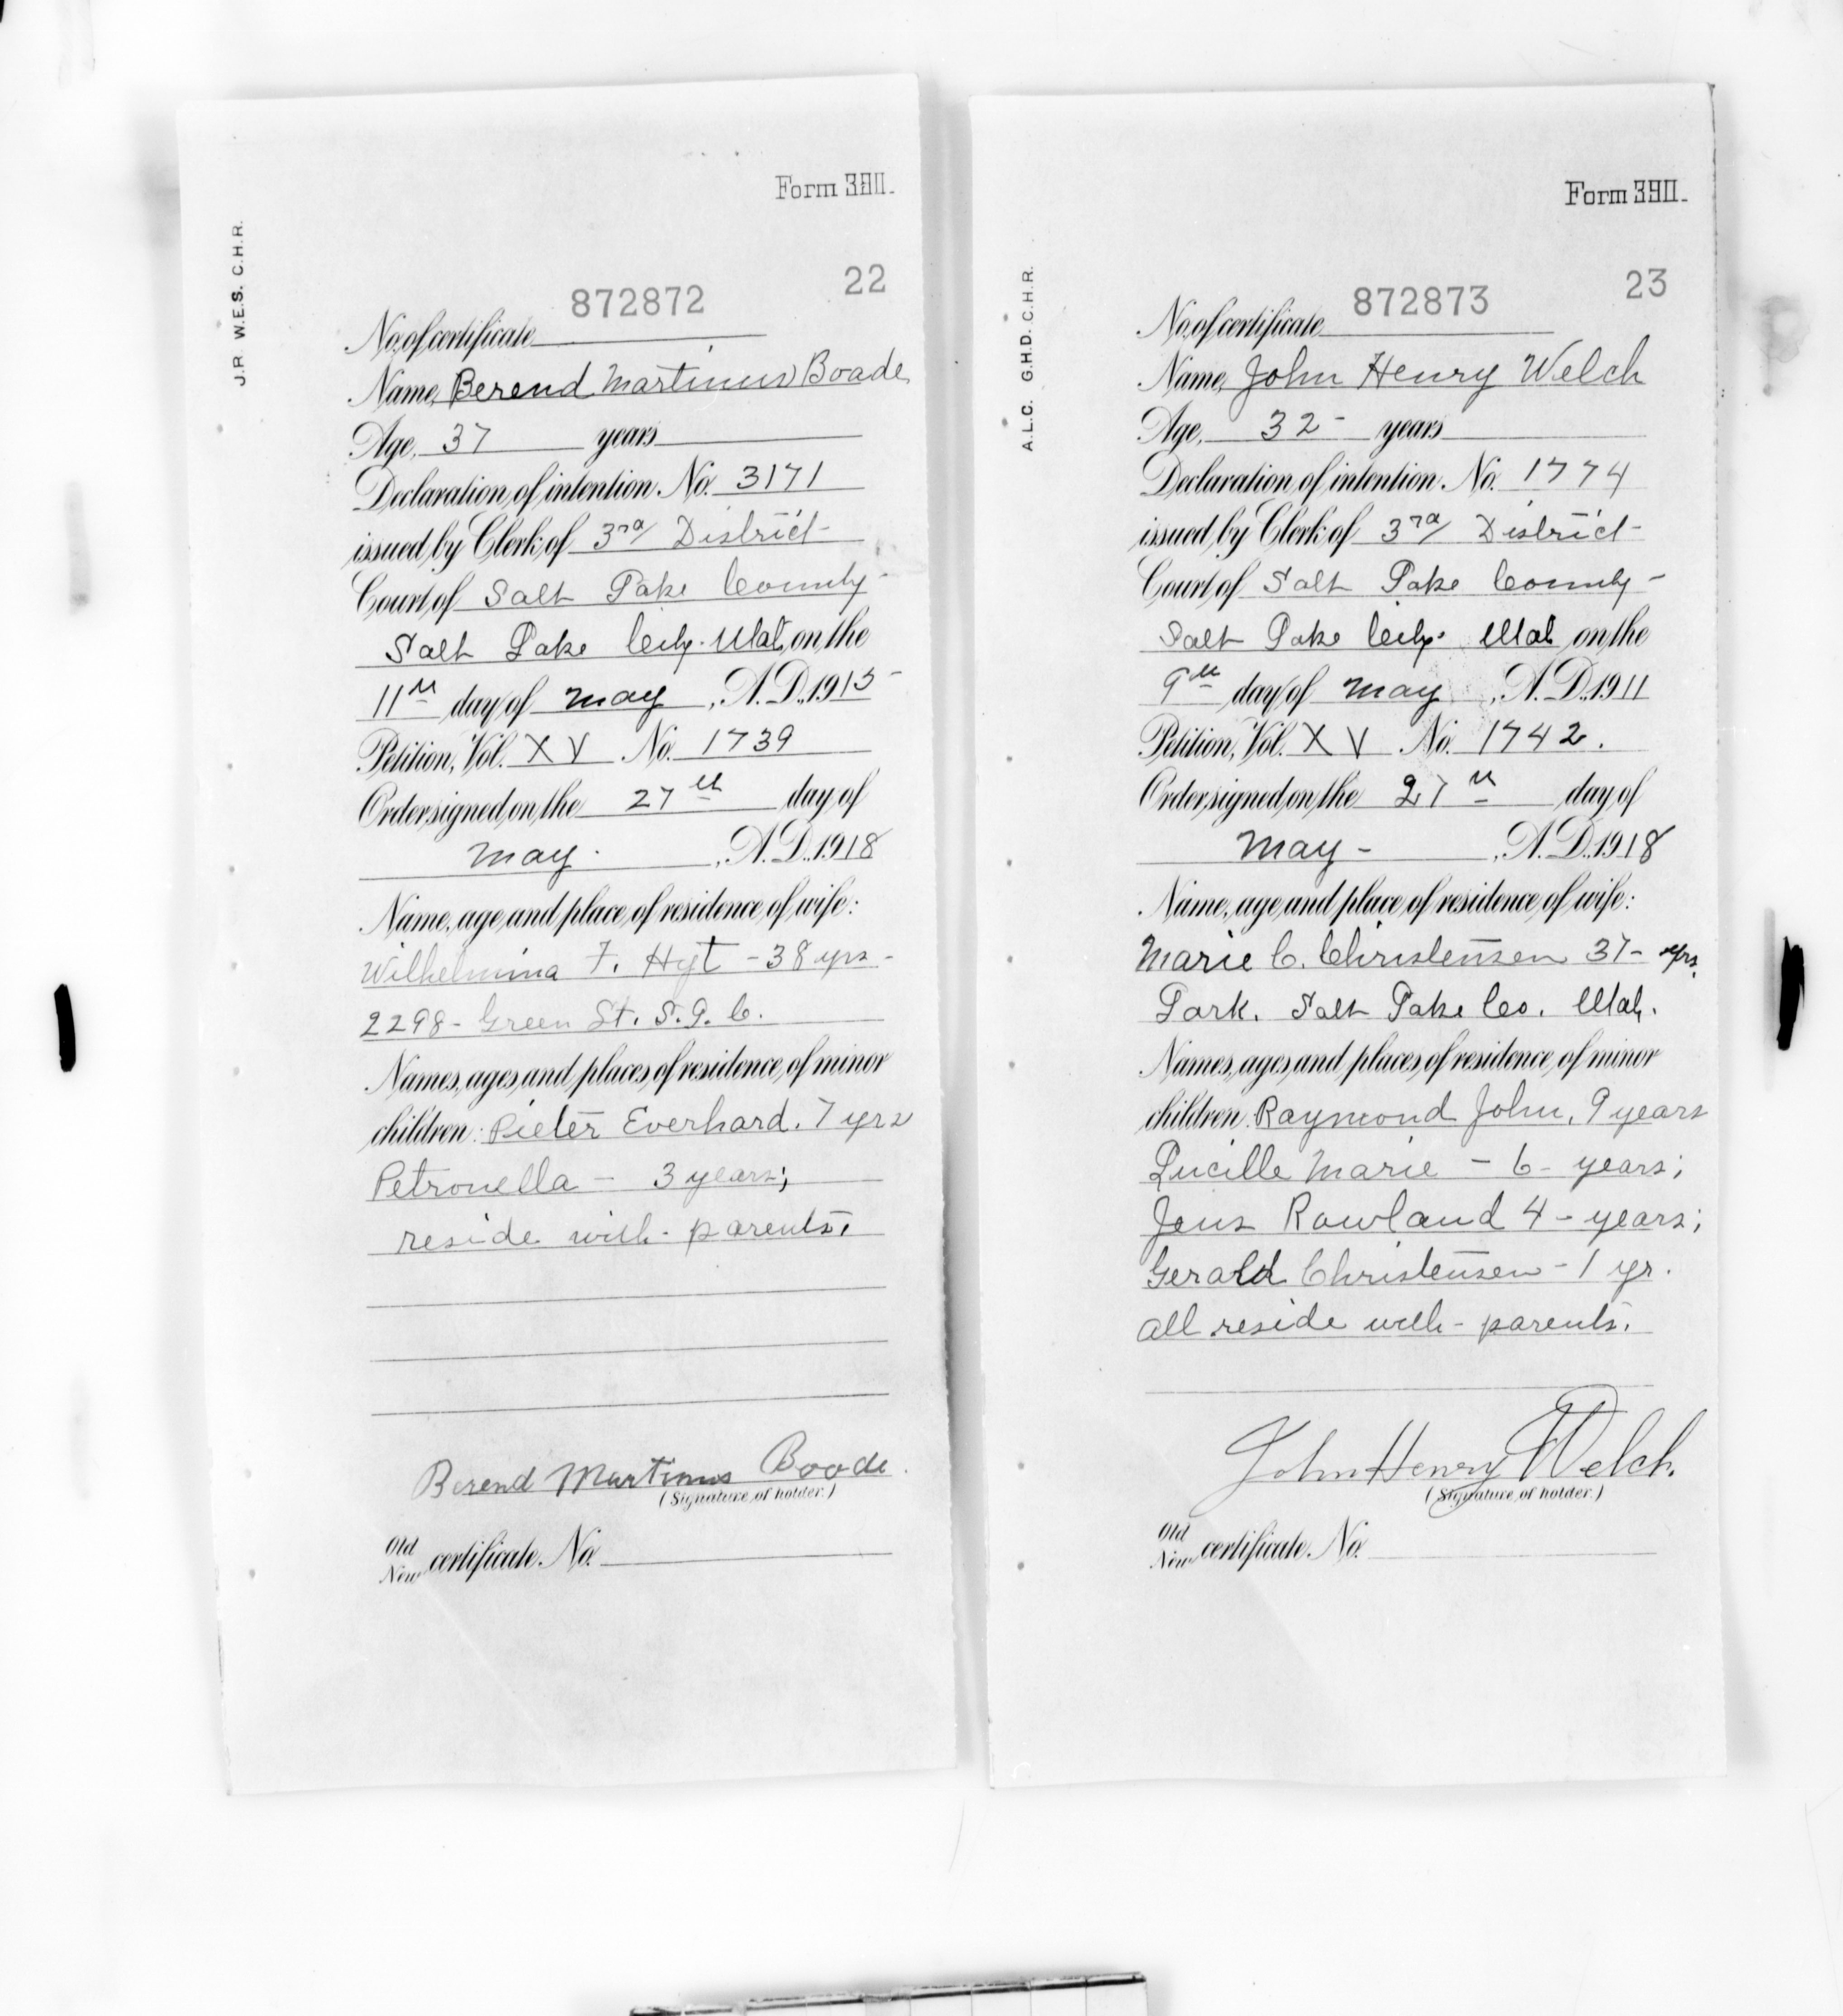 Form 390.
J.R. W.E.S. C.H.R.
22
872872
No. of certificate
Name, Berend Martinus Boade
Age, 37 years
Declaration of intention No. 3171
issued by Clerk of 3rd District
Court of Salt Lake County
Salt Lake City. Utah, on the
11th day of May, A.D. 1915
Petition, Vol. XV No. 1739
Order signed on the 27th day of
May, A.D. 1918
Name, age and place of residence of wife:
Wilhelmina F. Hyt - 38 yrs -
2298 - Green St. S. L. C.
Names, ages and places of residence of minor
children: Pieter Everhard. 7 yrs
Petronella - 3 years;
reside with parents.
Berend Martinus Boode
(Signature of holder.)
Old
New certificate No.
Form 390.
A.L.C. G.H.D. C.H.R.
23
872873
No. of certificate
Name, John Henry Welch
Age, 32 years
Declaration of intention No. 1774
issued by Clerk of 3rd District
Court of Salt Lake County
Salt Lake City. Utah on the
9th day of May, A.D. 1911
Petition, Vol. XV No. 1742.
Order signed on the 27th day of
May - , A.D. 1918
Name, age and place of residence of wife:
Marie C. Christensen 37 - yrs.
Lark. Salt Lake Co. Utah.
Names, ages and places of residence of minor
children. Raymond John, 9 years
Lucille Marie - 6 - years;
Jens Rowland 4 - years;
Gerald Christensen - 1 yr.
all reside with - parents.
John Henry Welch.
(Signature of holder.)
Old
New certificate No.